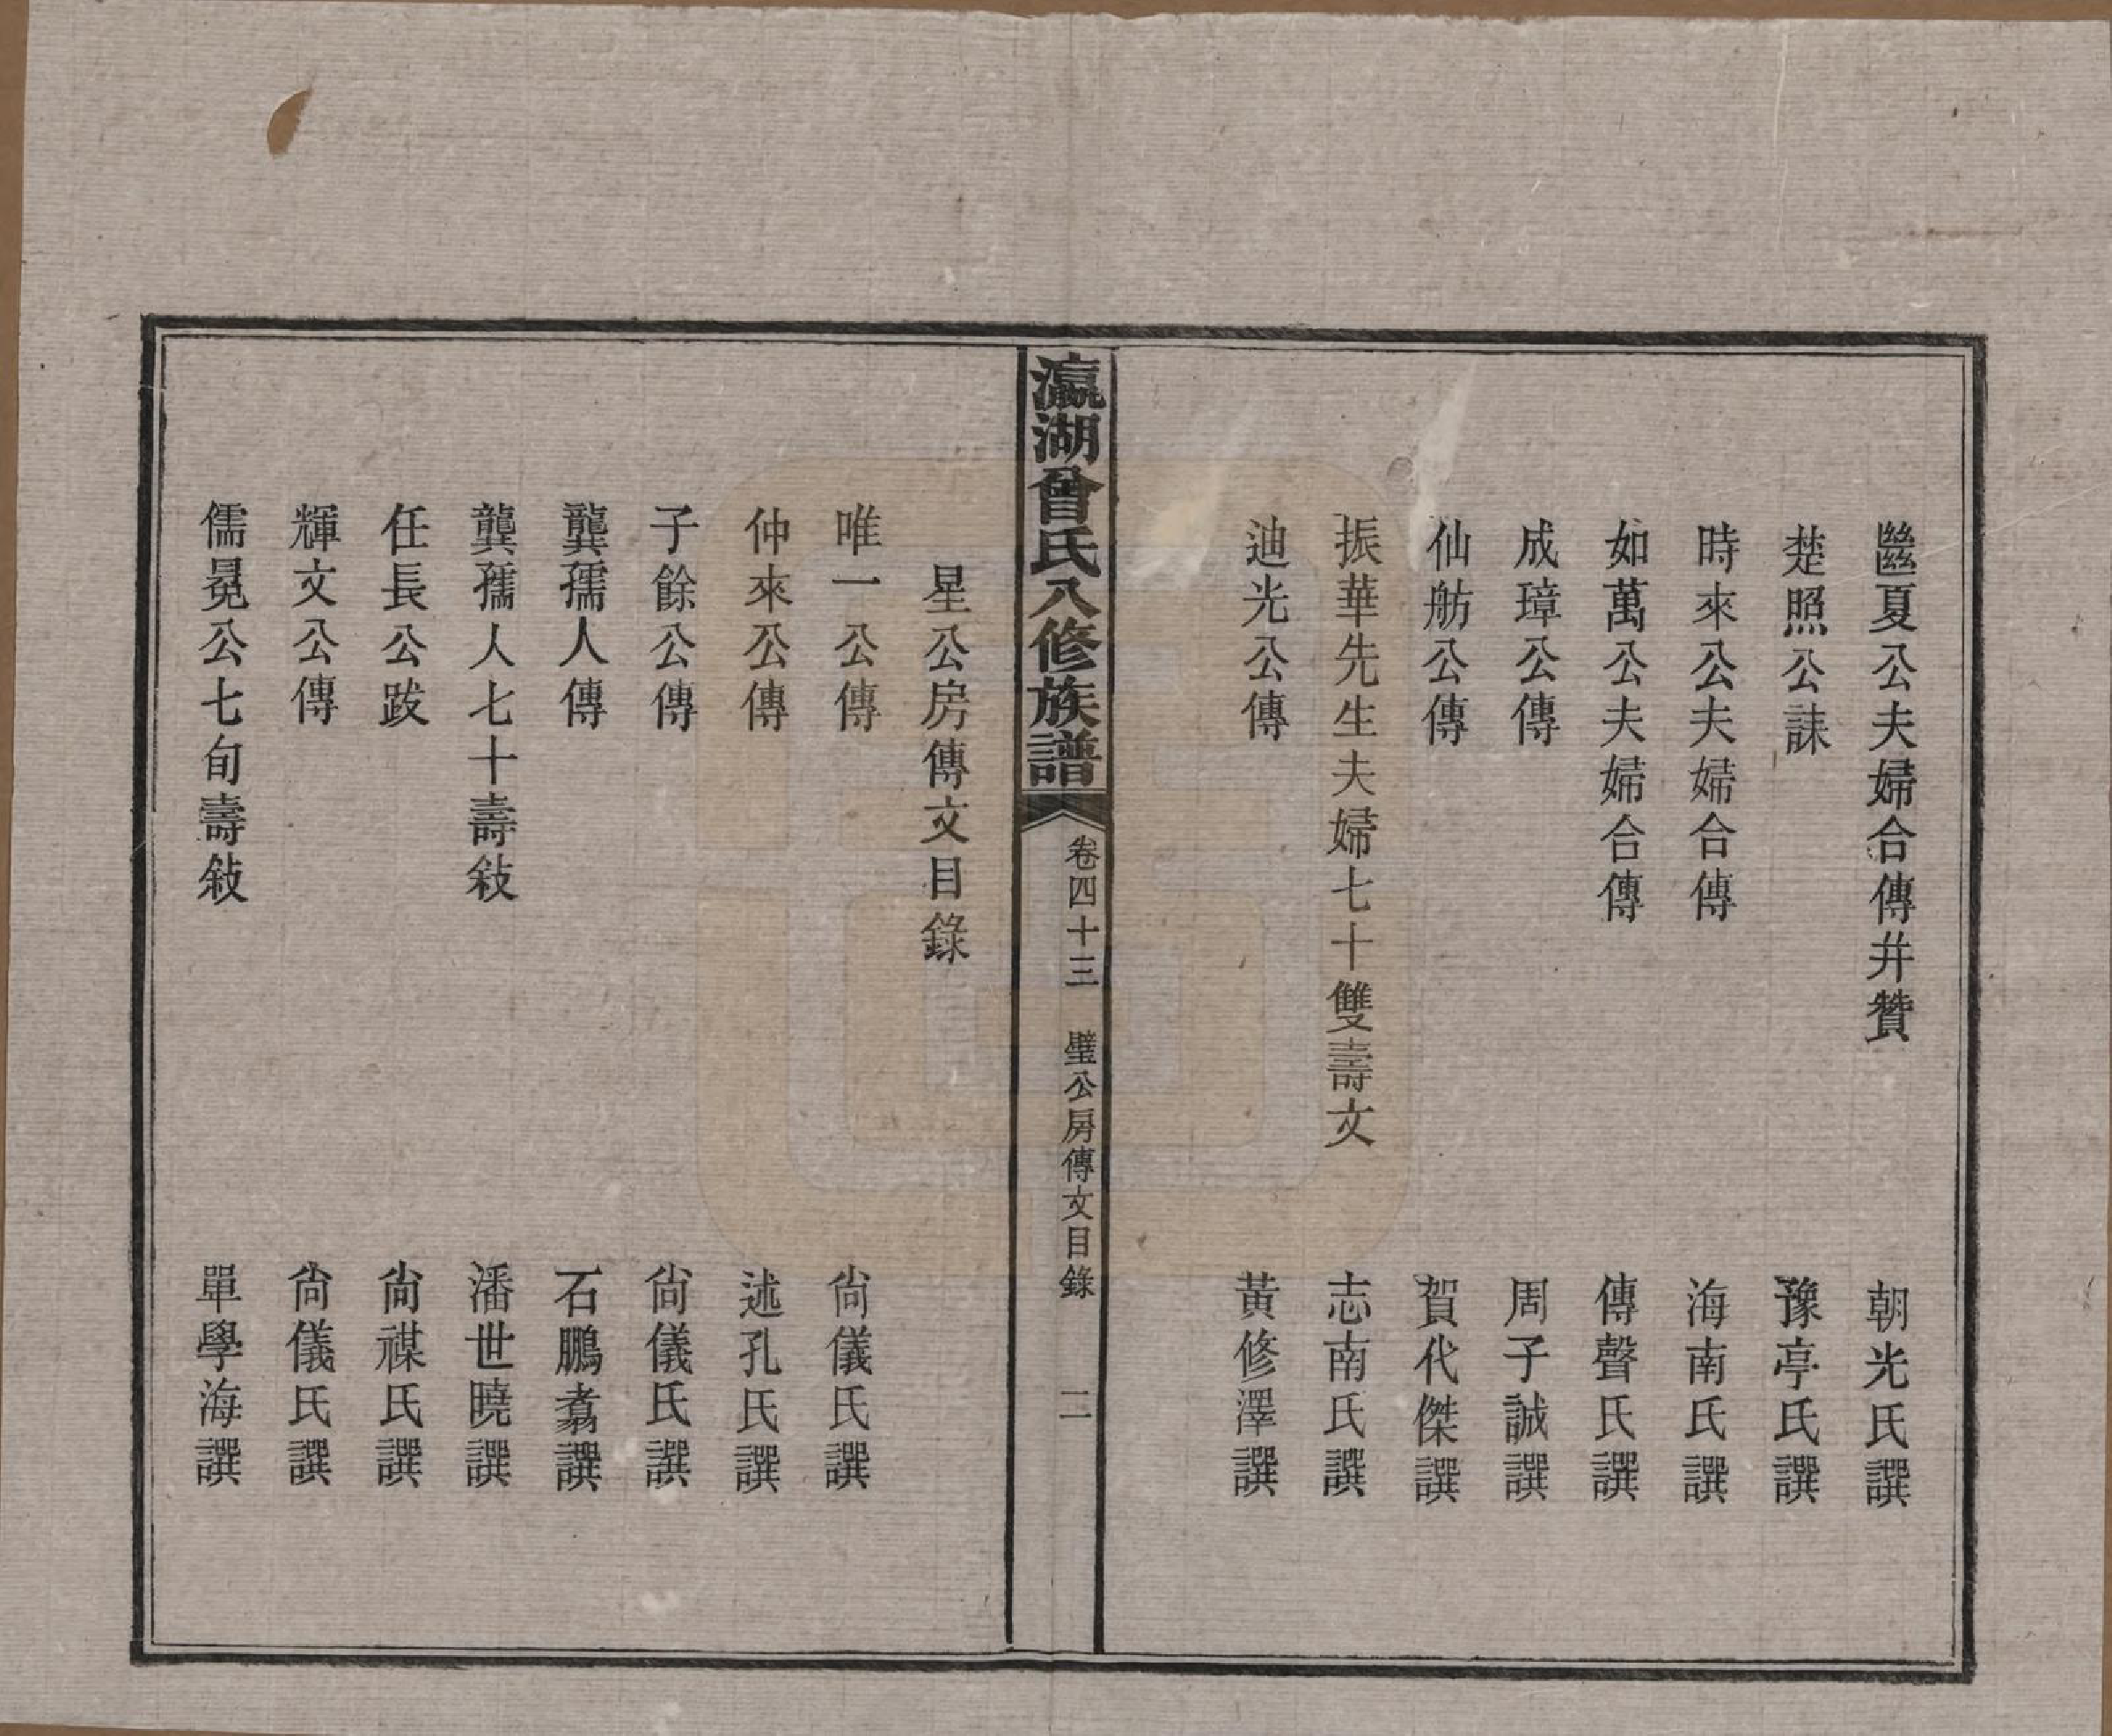 豳夏公夫婦合傳并贊　朝光氏譔
楚照公誄　豫亭氏譔
時來公夫婦合傳　海南氏譔
如萬公夫婦合傳　傳聲氏譔
成璋公傳　周子誠譔
仙舫公傳　賀代傑譔
振華先生夫婦七十雙壽文　志南氏譔
迪光公傳　黃修澤譔
瀛湖曾氏八修族譜　卷四十三　璧公房傳文目錄　二
星公房傳文目錄
唯一公傳　尙儀氏譔
仲來公傳　述孔氏譔
子餘公傳　尙儀氏譔
龔孺人傳　石鵬翥譔
龔孺人七十壽敍　潘世曉譔
任長公跋　尙禖氏譔
輝文公傳　尙儀氏譔
儒冕公七旬壽敍　單學海譔